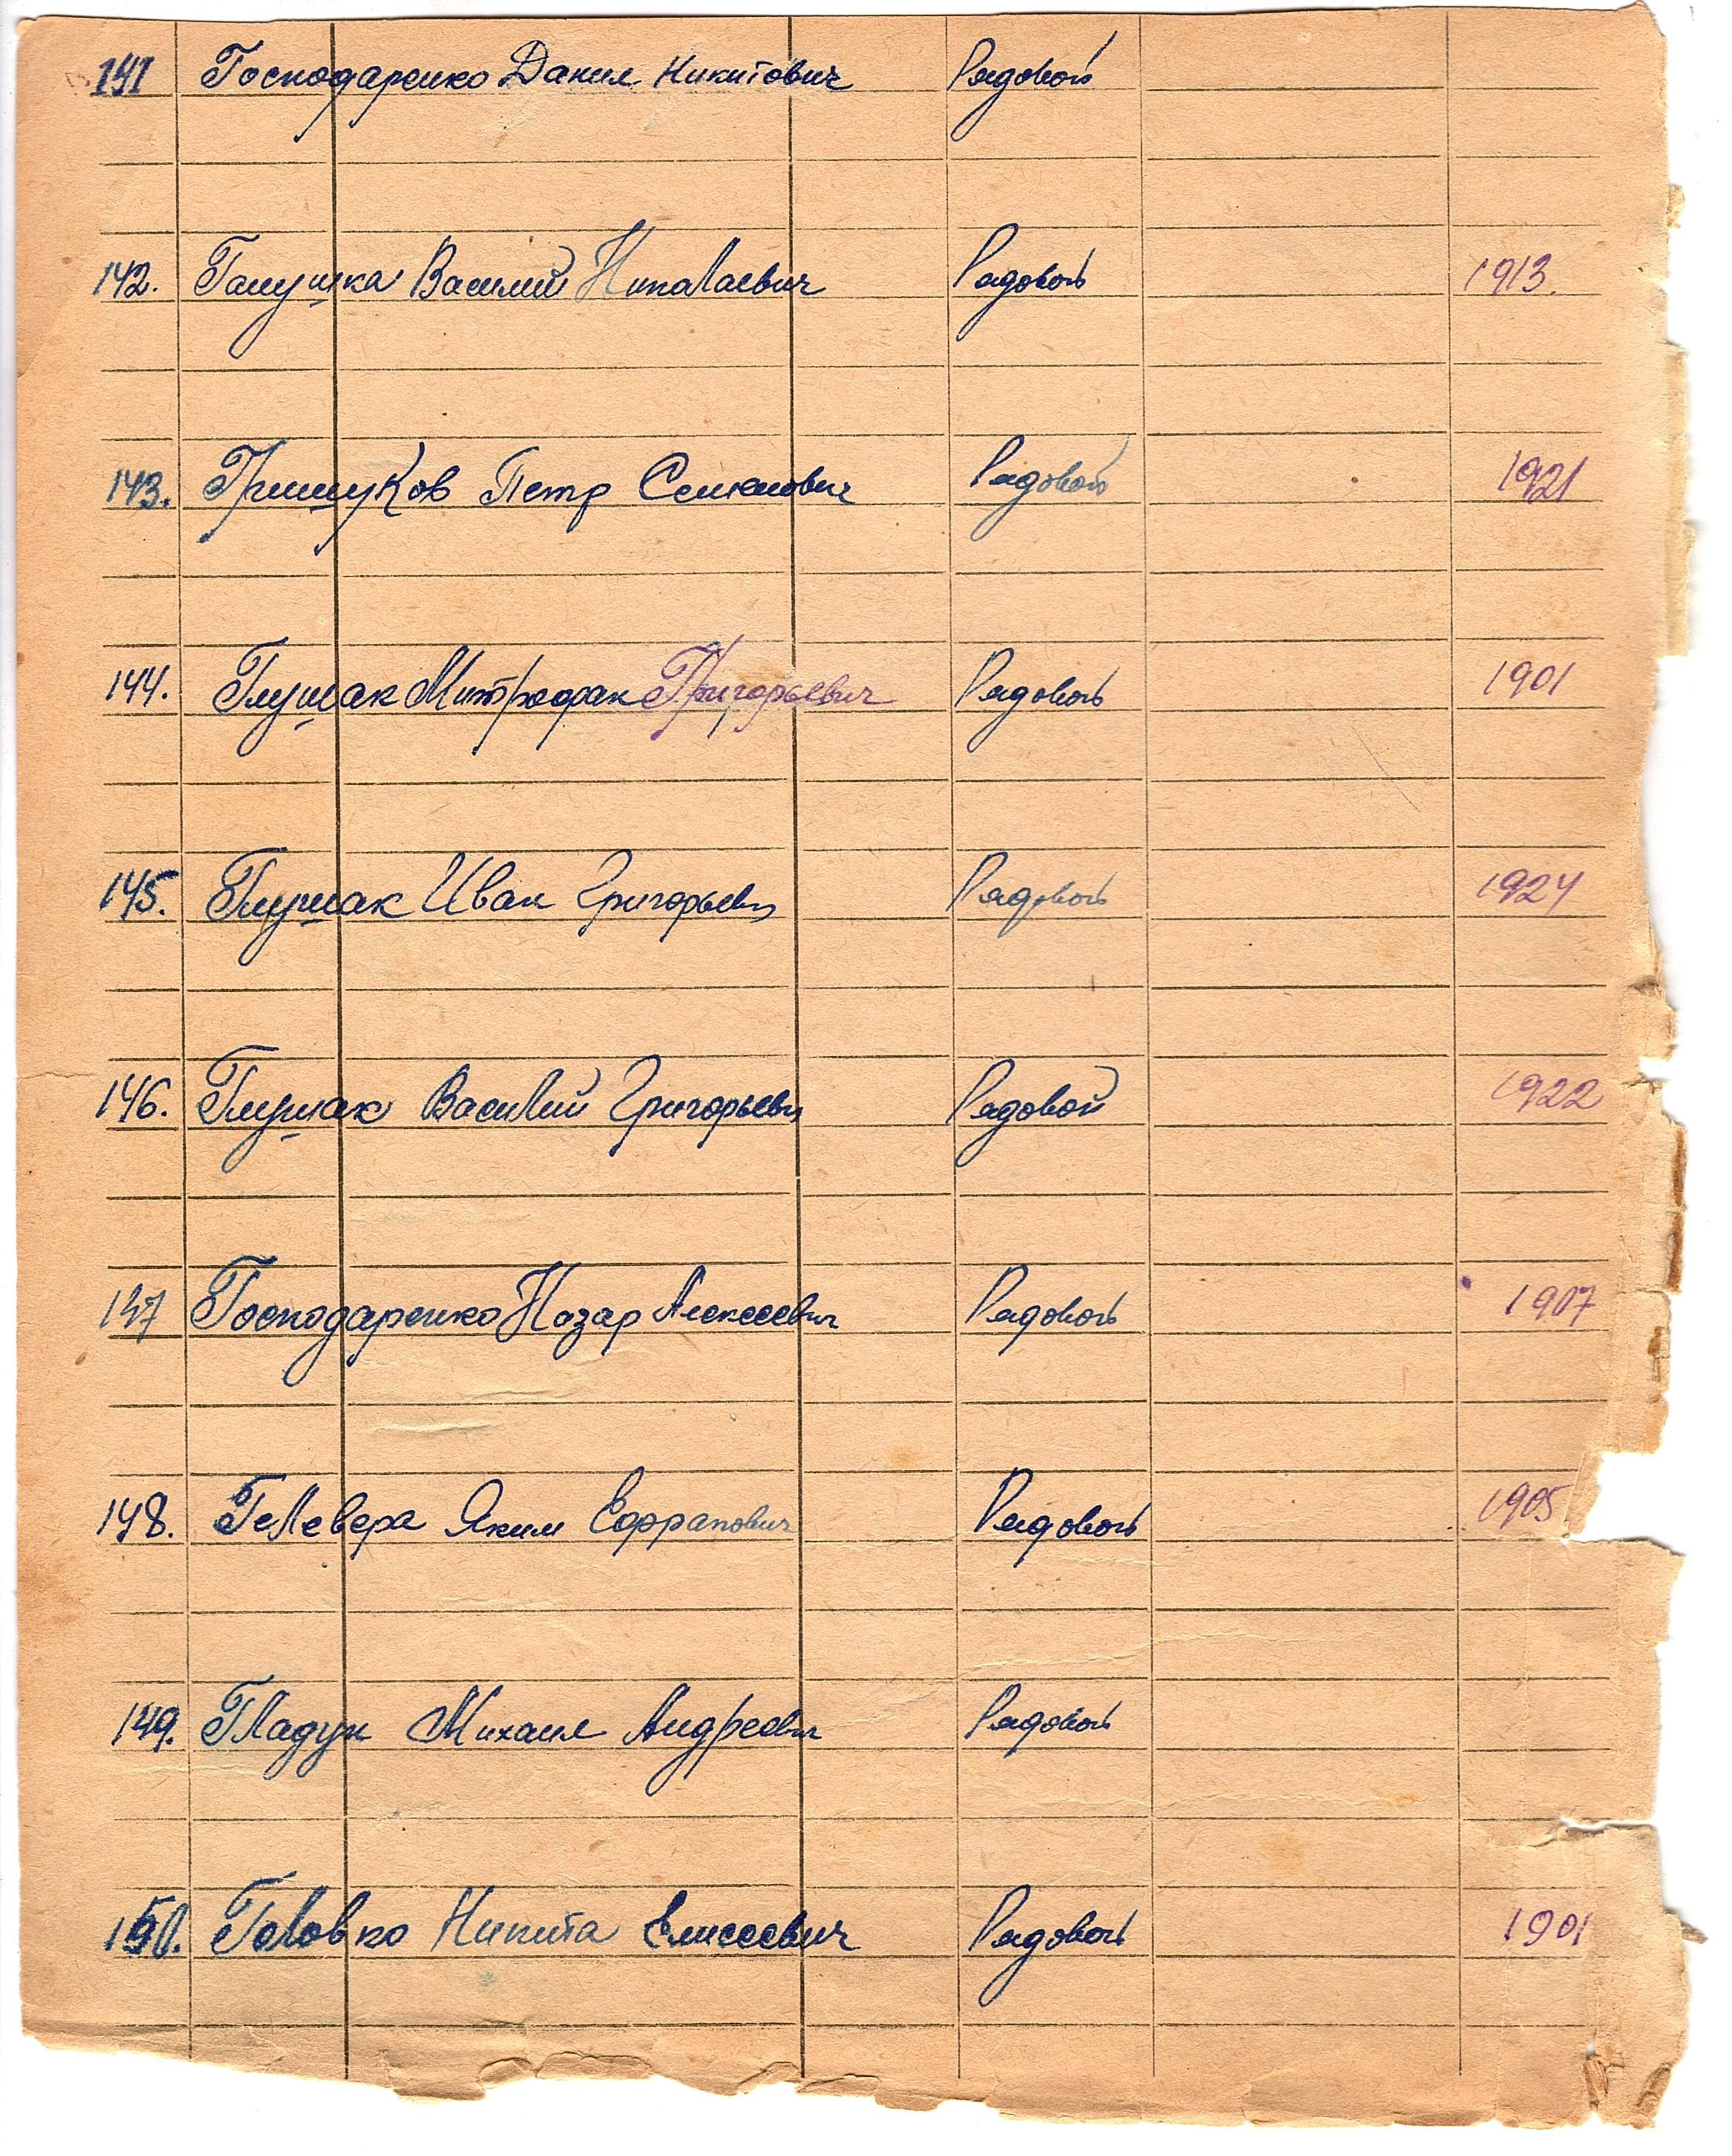 141 Господаренко Данил Никитович Рядовой
142. Галушка Василий Николаевич Рядовой 1913.
143. Гришуков Петр Семенович Рядовой 1921
144. Глушак Митрофан Григорьевич Рядовой 1901
145. Глушак Иван Григорьевич Рядовой 1924
146. Глушак Василий Григорьевич Рядовой 1922
147 Господаренко Назар Алексеевич Рядовой 1907
148. Гелевера Яким Рядовой 1905
149. Гладун Михаил Андреевич Рядовой
150. Головко Никита Елисеевич Рядовой 1901